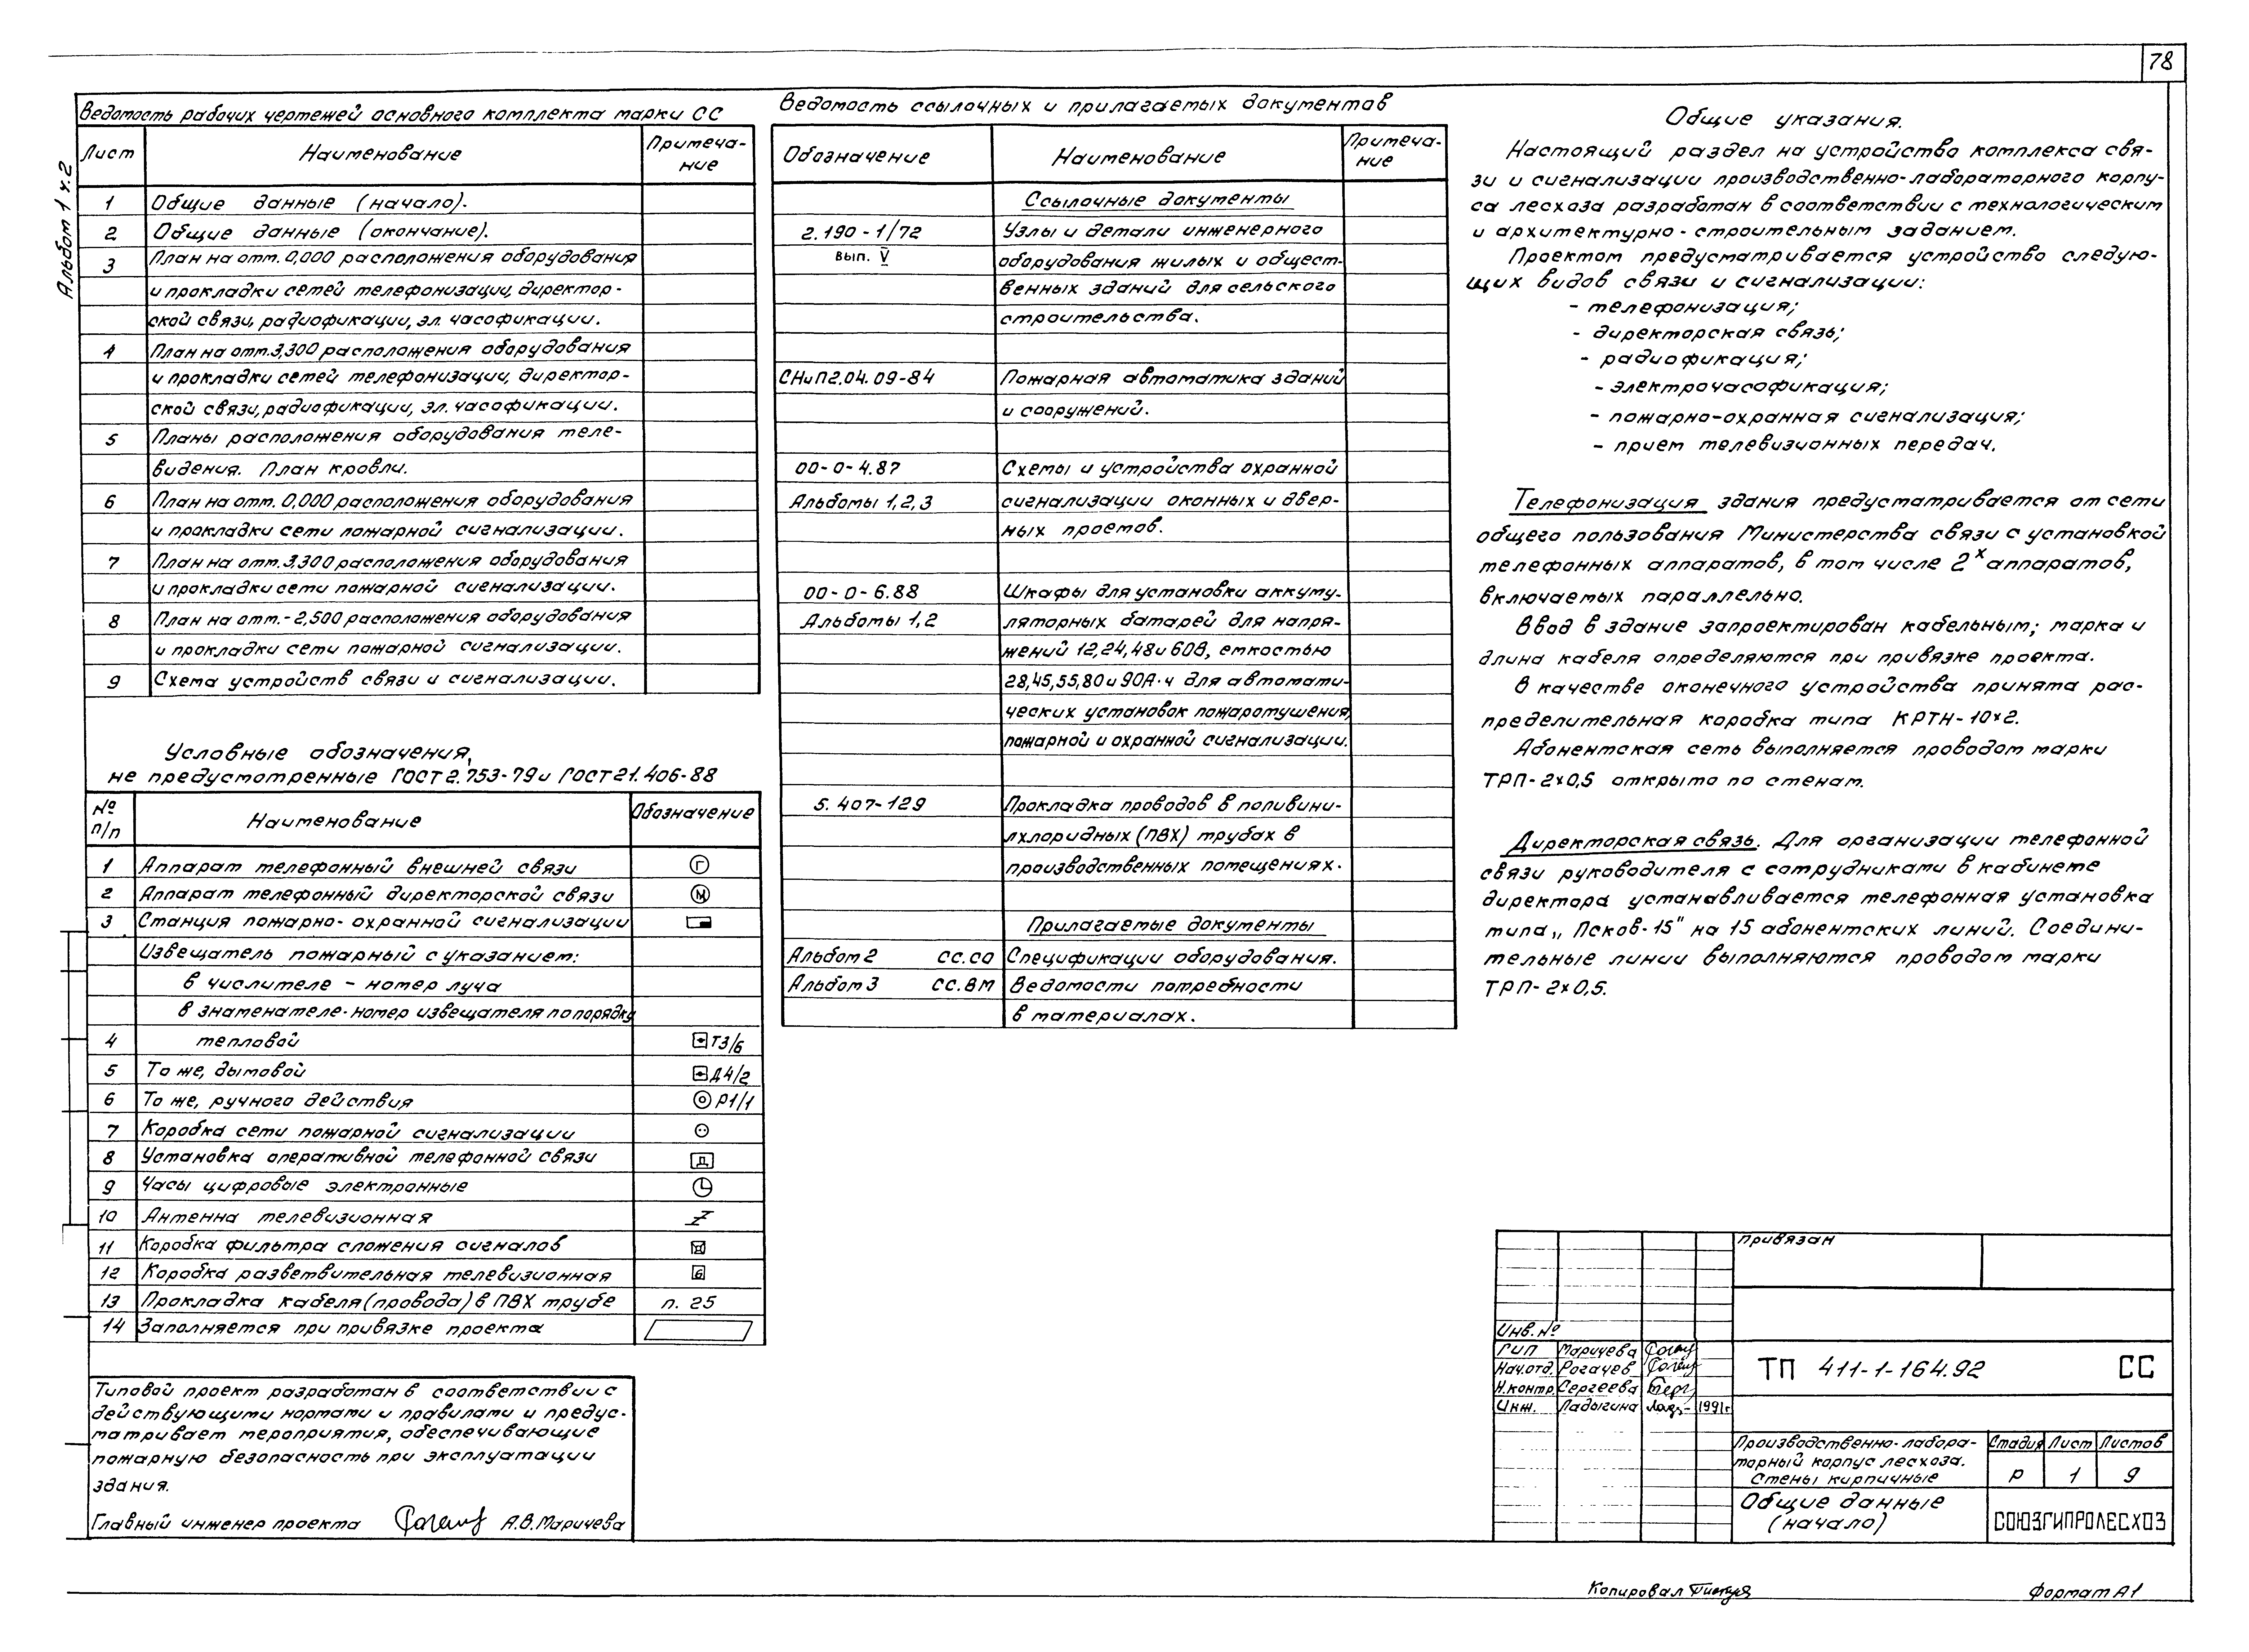 78
Альбом 1 ч.2
Ведомость рабочих чертежей основного комплекта марки СС
Лист Наименование Примеча-
ние
1 Общие данные (начало).
2 Общие данные (окончание).
3 План на отм. 0,000 расположения оборудования
и прокладки сетей телефонизации, директор-
ской связи, радиофикации, эл. часофикации.
4 План на отм. 3,300 расположения оборудования
и прокладки сетей телефонизации, директор-
ской связи, радиофикации, эл. часофикации.
5 Планы расположения оборудования теле-
видения. План кровли.
6 План на отм. 0,000 расположения оборудования
и прокладки сети пожарной сигнализации.
7 План на отм. 3,300 расположения оборудования
и прокладки сети пожарной сигнализации.
8 План на отм. -2,500 расположения оборудования
и прокладки сети пожарной сигнализации.
9 Схема устройств связи и сигнализации.
Условные обозначения,
не предусмотренные ГОСТ 2.753-79 и ГОСТ 21.406-88
№ п/п Наименование Обозначение
1 Аппарат телефонный внешней связи Г
2 Аппарат телефонный директорской связи М
3 Станция пожарно-охранной сигнализации
Извещатель пожарный с указанием:
в числителе - номер луча
в знаменателе-номер извещателя по порядку
4 тепловой Т3/6
5 То же, дымовой Д4/2
6 То же, ручного действия Р1/1
7 Коробка сети пожарной сигнализации
8 Установка оперативной телефонной связи Д
9 Часы цифровые электронные
10 Антенна телевизионная
11 Коробка фильтра сложения сигналов
12 Коробка разветвительная телевизионная
13 Прокладка кабеля (провода) в ПВХ трубе п. 25
14 Заполняется при привязке проекта
Типовой проект разработан в соответствии с
действующими нормами и правилами и предус-
матривает мероприятия, обеспечивающие
пожарную безопасность при эксплуатации
здания.
Главный инженер проекта А.В. Маричева
Ведомость ссылочных и прилагаемых документов
Обозначение Наименование Примеча-
ние
Ссылочные документы
2.190-1/72 Узлы и детали инженерного
вып. V оборудования жилых и общест-
венных зданий для сельского
строительства.
СНиП 2.04.09-84 Пожарная автоматика зданий
и сооружений.
00-0-4.87 Схемы и устройства охранной
Альбомы 1,2,3 сигнализации оконных и двер-
ных проемов.
00-0-6.88 Шкафы для установки аккуму-
Альбомы 1,2 ляторных батарей для напря-
жений 12,24,48 и 60В, емкостью
28,45,55,80 и 90А·ч для автомати-
ческих установок пожаротушения,
пожарной и охранной сигнализации.
5.407-129 Прокладка проводов в поливини-
лхлоридных (ПВХ) трубах в
производственных помещениях.
Прилагаемые документы
Альбом 2 СС.СО Спецификации оборудования.
Альбом 3 СС.ВМ Ведомости потребности
в материалах.
Общие указания.
Настоящий раздел на устройство комплекса свя-
зи и сигнализации производственно-лабораторного корпу-
са лесхоза разработан в соответствии с технологическим
и архитектурно-строительным заданием.
Проектом предусматривается устройство следую-
щих видов связи и сигнализации:
- телефонизация;
- директорская связь;
- радиофикация;
- электрочасофикация;
- пожарно-охранная сигнализация;
- прием телевизионных передач.
Телефонизация здания предусматривается от сети
общего пользования Министерства связи с установкой
телефонных аппаратов, в том числе 2х аппаратов,
включаемых параллельно.
Ввод в здание запроектирован кабельным; марка и
длина кабеля определяются при привязке проекта.
В качестве оконечного устройства принята рас-
пределительная коробка типа КРТН-10×2.
Абонентская сеть выполняется проводом марки
ТРП-2×0,5 открыто по стенам.
Директорская связь. Для организации телефонной
связи руководителя с сотрудниками в кабинете
директора устанавливается телефонная установка
типа „Псков-15" на 15 абонентских линий. Соедини-
тельные линии выполняются проводом марки
ТРП-2×0,5.
Привязан
Инв. №
ГИП Маричева
Нач.отд. Рогачев
Н.контр. Сергеева
Инж. Ладыгина 1991г.
ТП 411-1-164.92 СС
Производственно-лабора-
торный корпус лесхоза.
Стены кирпичные
Стадия Лист Листов
Р 1 9
Общие данные
(начало)
СОЮЗГИПРОЛЕСХОЗ
Копировал
Формат А1